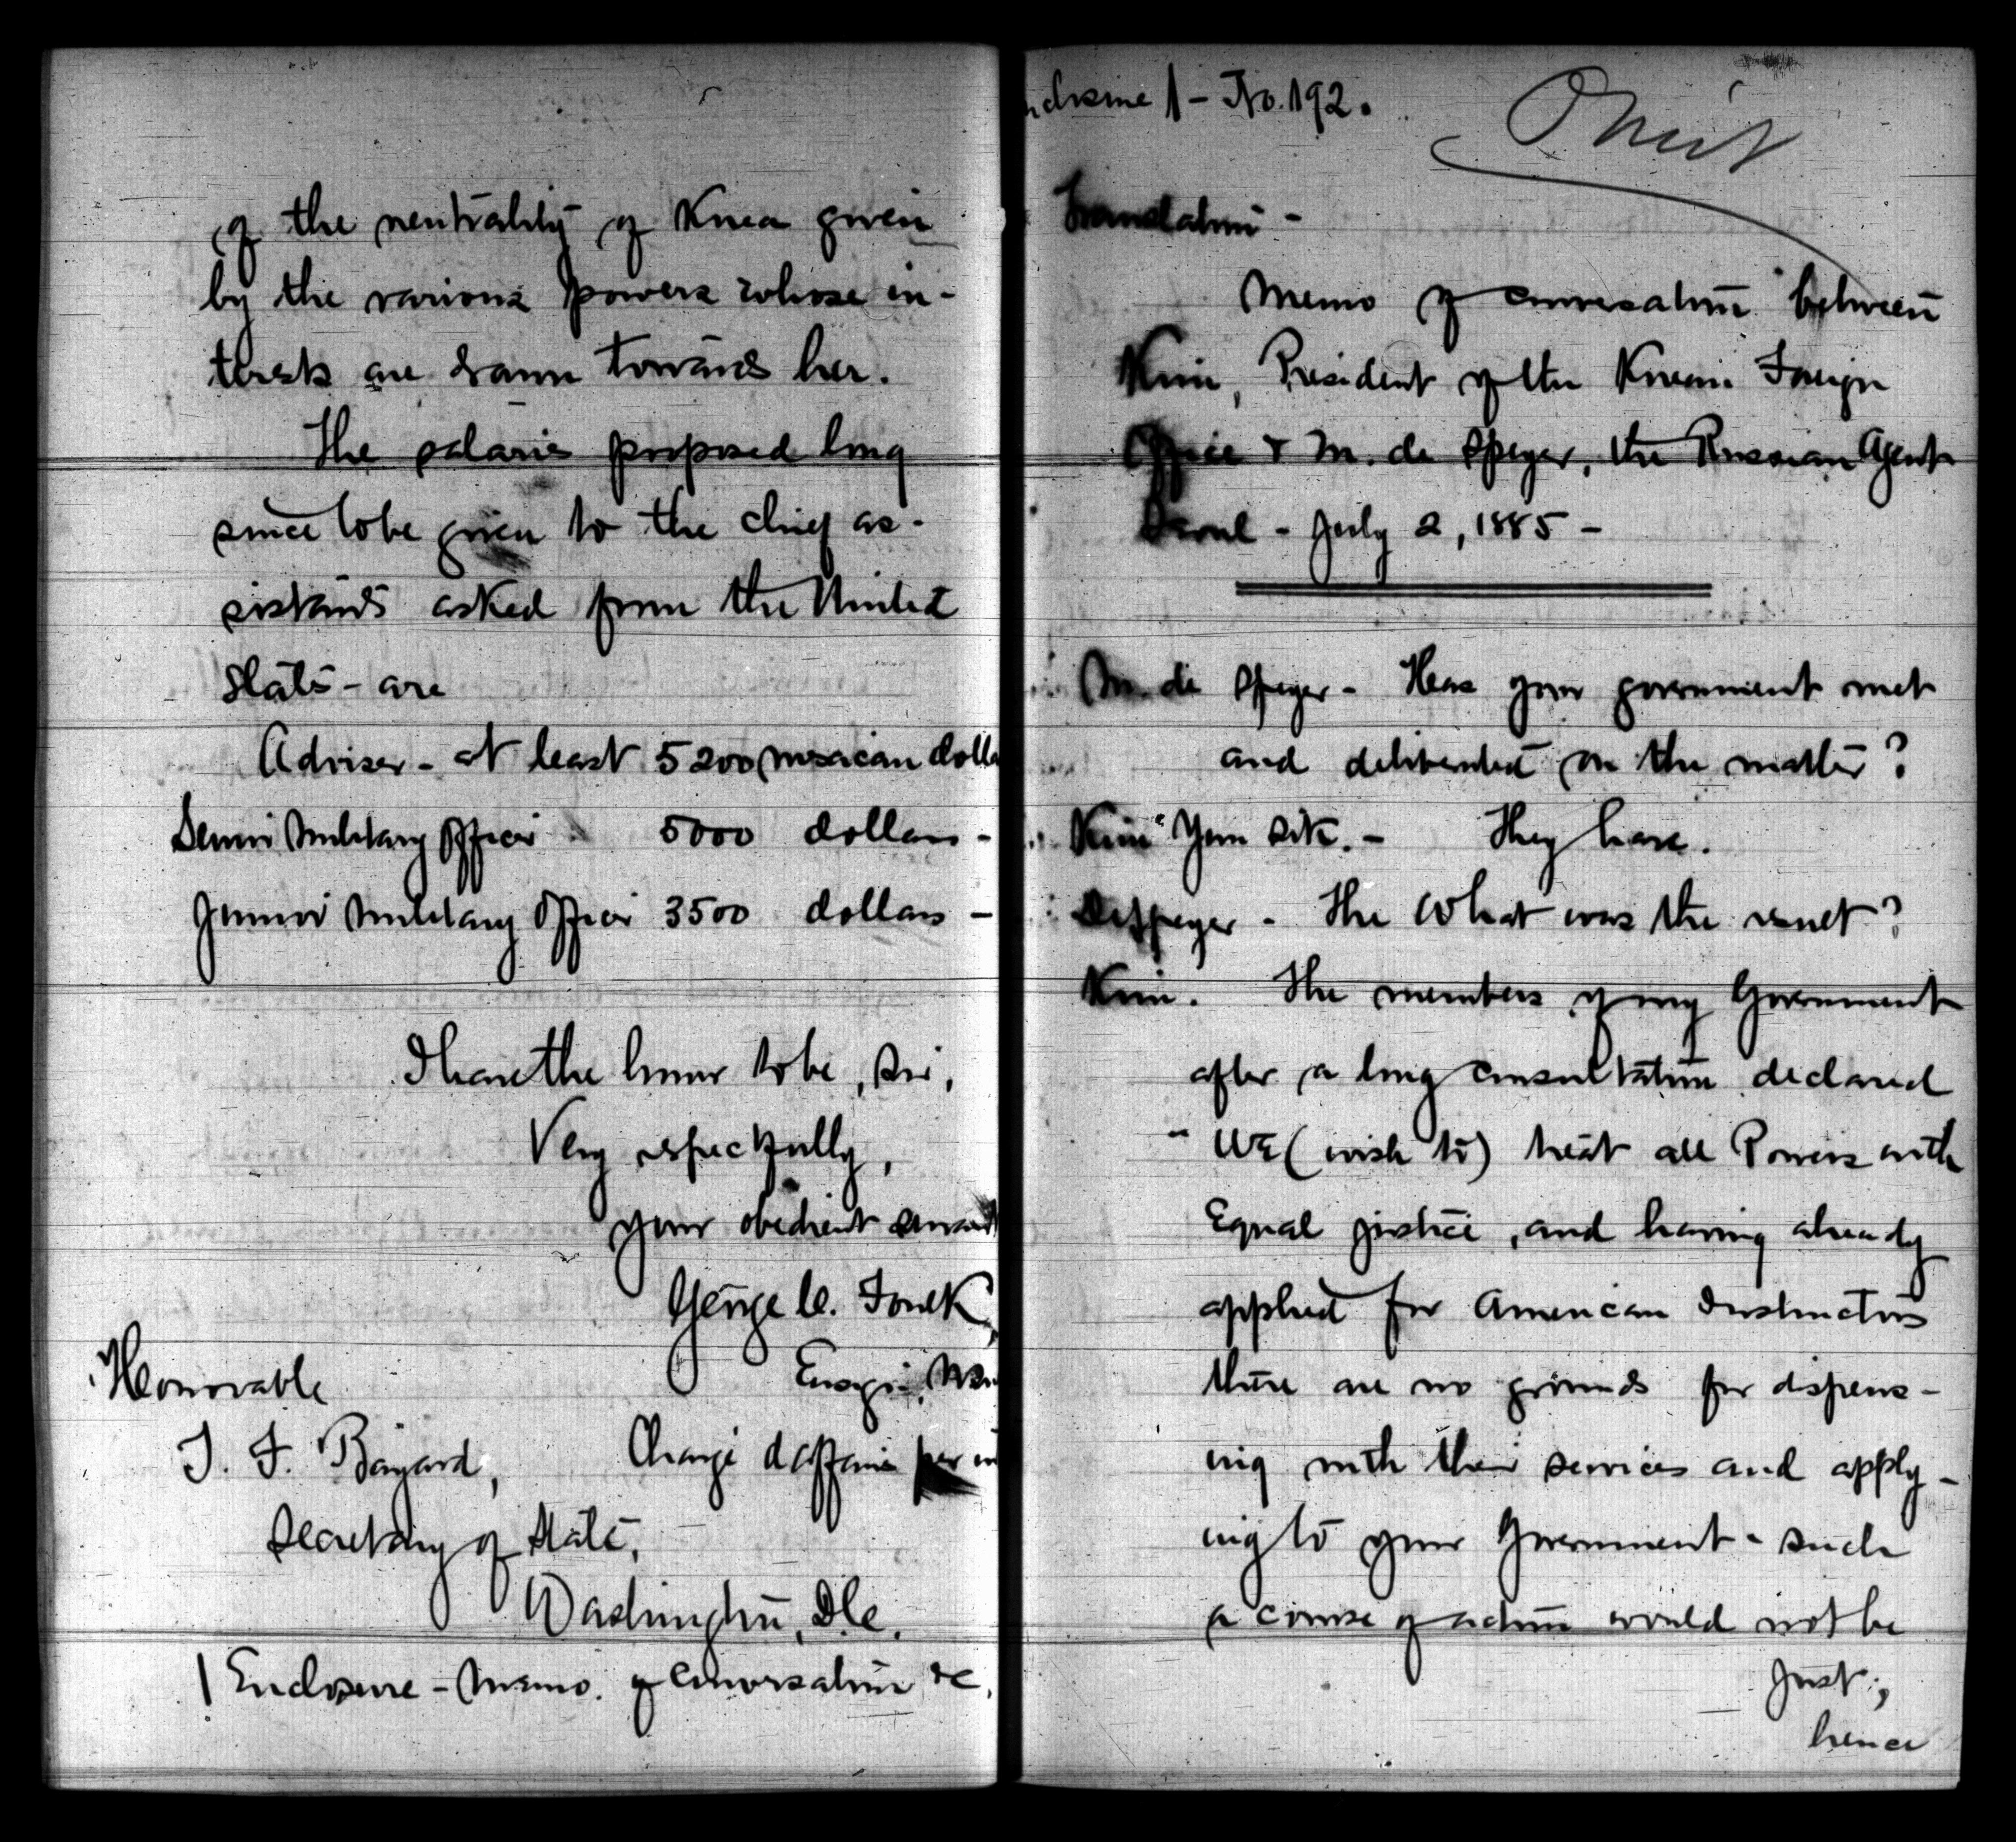 of the neutrality of Korea given
by the various powers whose in-
terests are drawn towards her.
The salaries proposed long
since to be given to the chief as-
sistants asked from the United
States - are
Adviser - at least 5200 Mexican dolla
Senior Military Officer 5000 dollars -
Junior Military Officer 3500 dollars -
I have the honor to be, Sir,
Very respectfully,
your obedient servant
George C. Foulk,
Ensign,
Honorable
T. F. Bayard,
Chargé d'affaires per in
Secretary of State,
Washington, D.C.
1 Enclosure - Memo. of Conversation &c.
nclosure 1 - No. 192.
Omit
Translation -
Memo of conversation between
Kim, President of the Korean Foreign
Office & M. de Speyer, the Russian Agent
Seoul - July 2, 1885 -
M. de Speyer - Has your government met
and deliberated on the matter?
Kim Yun Sik. - They have.
De Speyer - The What was the result?
Kim. The members of my Government
after a long consultation declared
"We (wish to) treat all Powers with
Equal justice, and having already
applied for American Instructors
there are no grounds for dispens-
ing with their services and apply-
ing to your Government - such
a course of action would not be
just;
hence